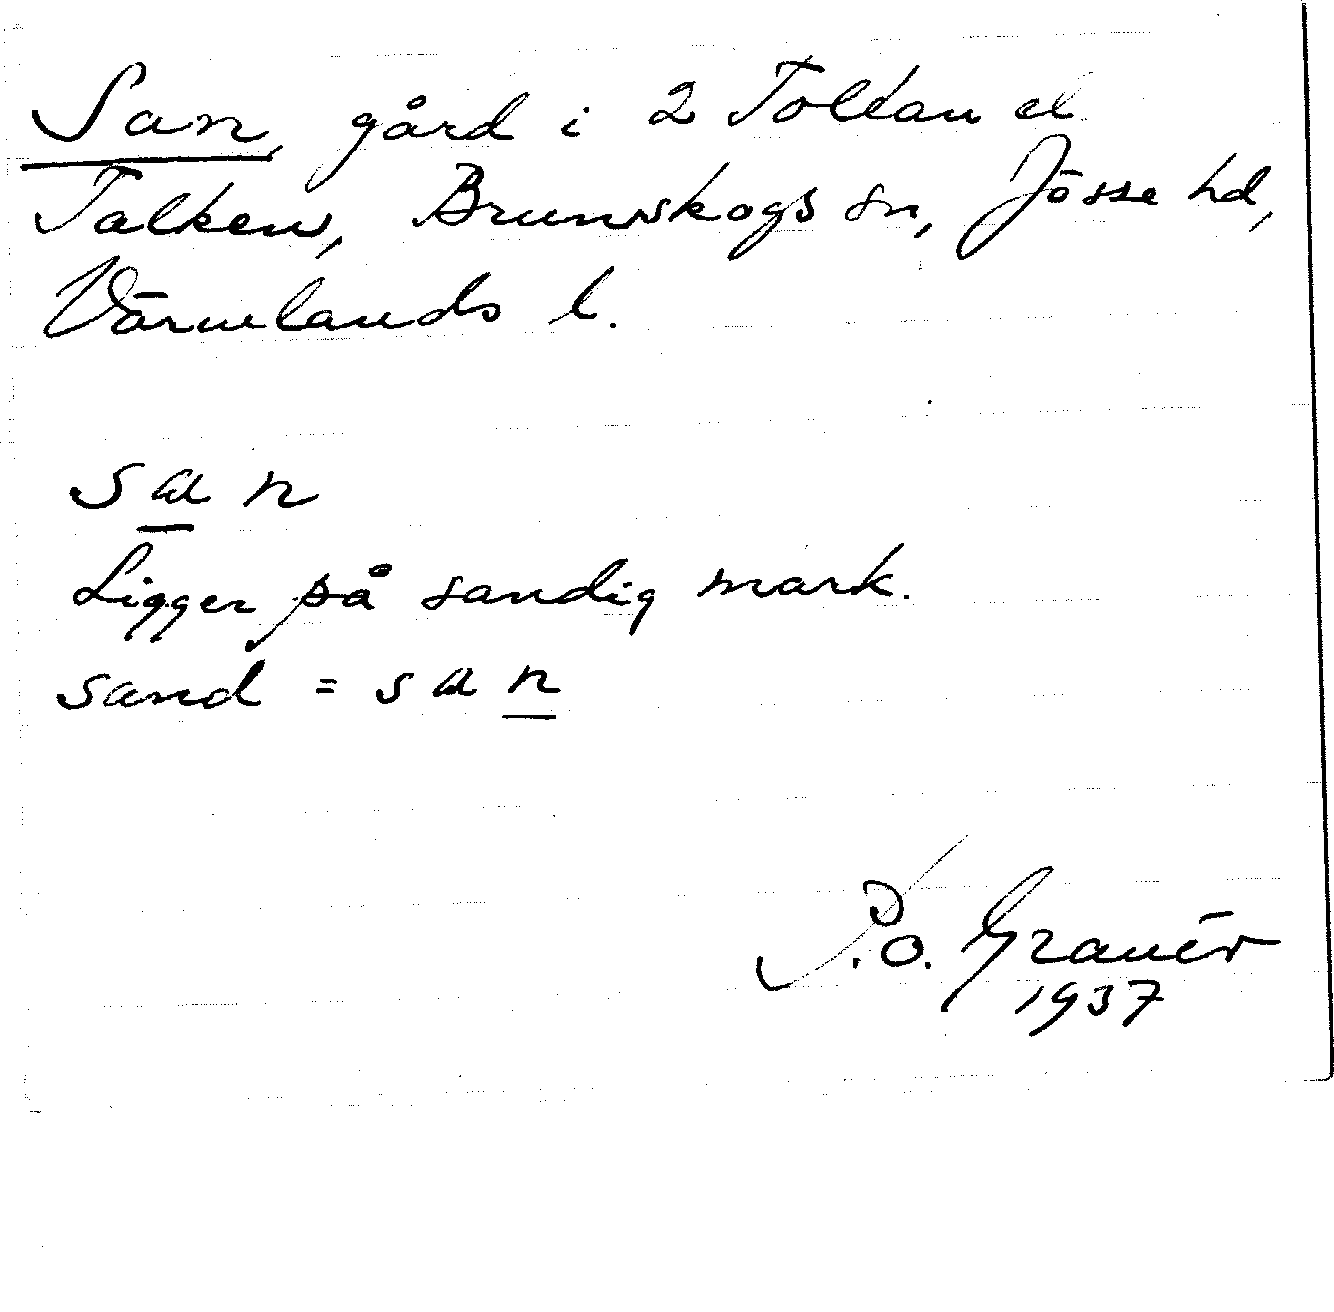 San, gård i 2 Tolkan el
Talken, Brunskogs sn, Jösse hd,
Värmlands l.
san
Ligger på sandig mark.
sand = san
P.O. Granér
1937